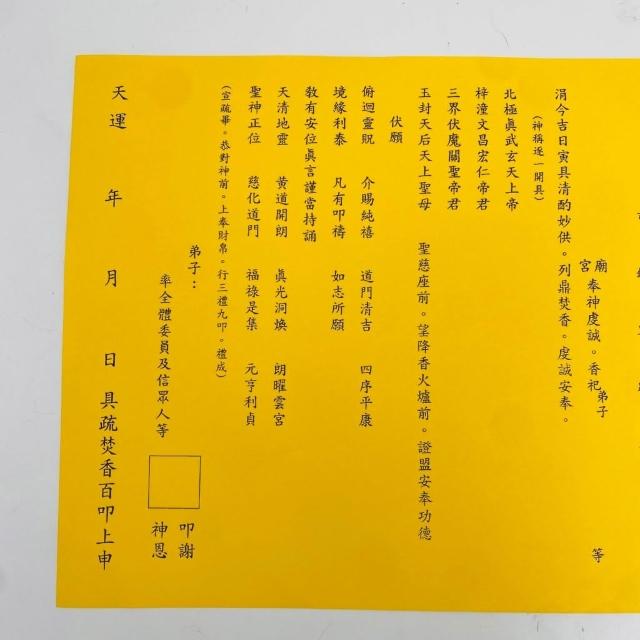 廟宮 奉神虔誠。香祀 弟子 等
涓今吉日寅具清酌妙供。列鼎焚香。虔誠安奉。
（神稱逐一開具）
北極真武玄天上帝
梓潼文昌宏仁帝君
三界伏魔關聖帝君
玉封天后天上聖母 聖慈座前。望降香火爐前。證盟安奉功德
伏願
俯迴靈貺 介賜純禧 道門清吉 四序平康
境緣利泰 凡有叩禱 如志所願
教有安位真言謹當持誦
天清地靈 黃道開朗 真光洞煥 朗曜雲宮
聖神正位 慈化道門 福祿是集 元亨利貞
（宣疏畢。恭對神前。上奉財帛。行三禮九叩。禮成）
弟子：
率全體委員及信眾人等 叩謝神恩
天運 年 月 日 具疏焚香百叩上申